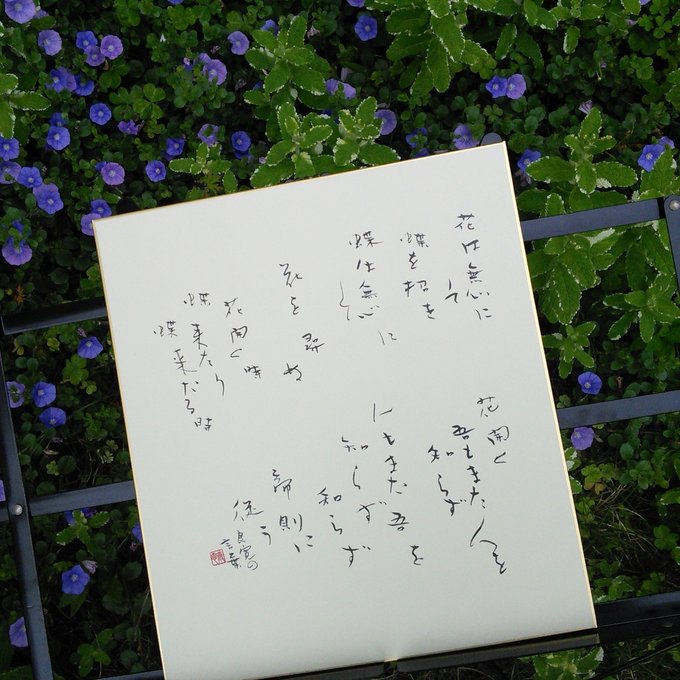 花は無心に
して
蝶を招き
蝶は無心に
して
花を尋ぬ
花開く時
蝶来たり
蝶来たる時
花開く
吾もまた人を
知らず
人もまた吾を
知らず
知らず
帝則に
従う
良寛の
言葉